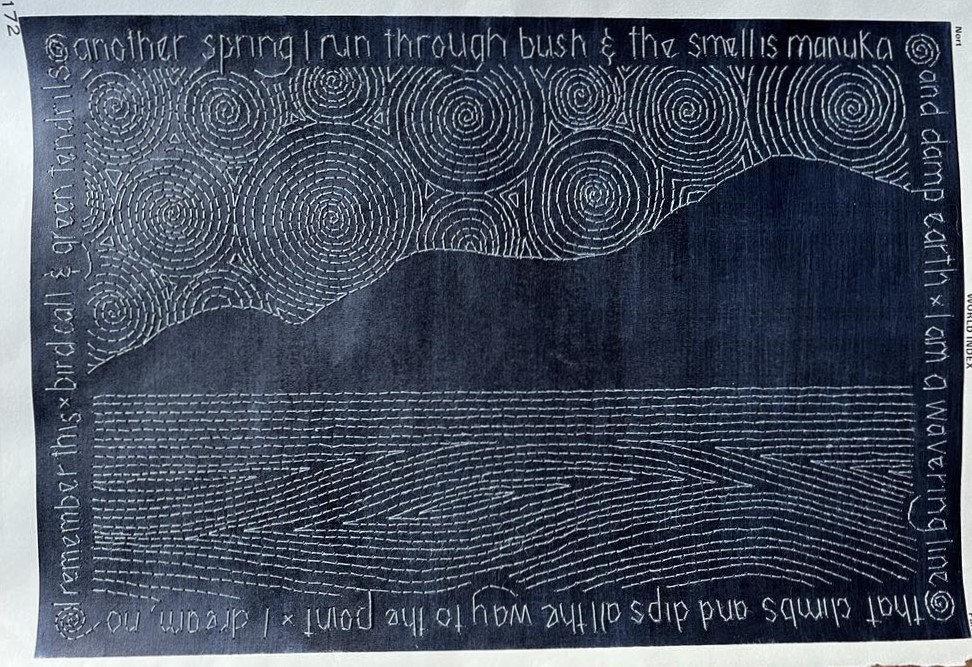 172
another spring I run through bush & the smell is manuka
and damp earth x I am a wavering line
that climbs and dips all the way to the point x I dream, no
I remember this x bird call & green tendrils
WORLD INDEX